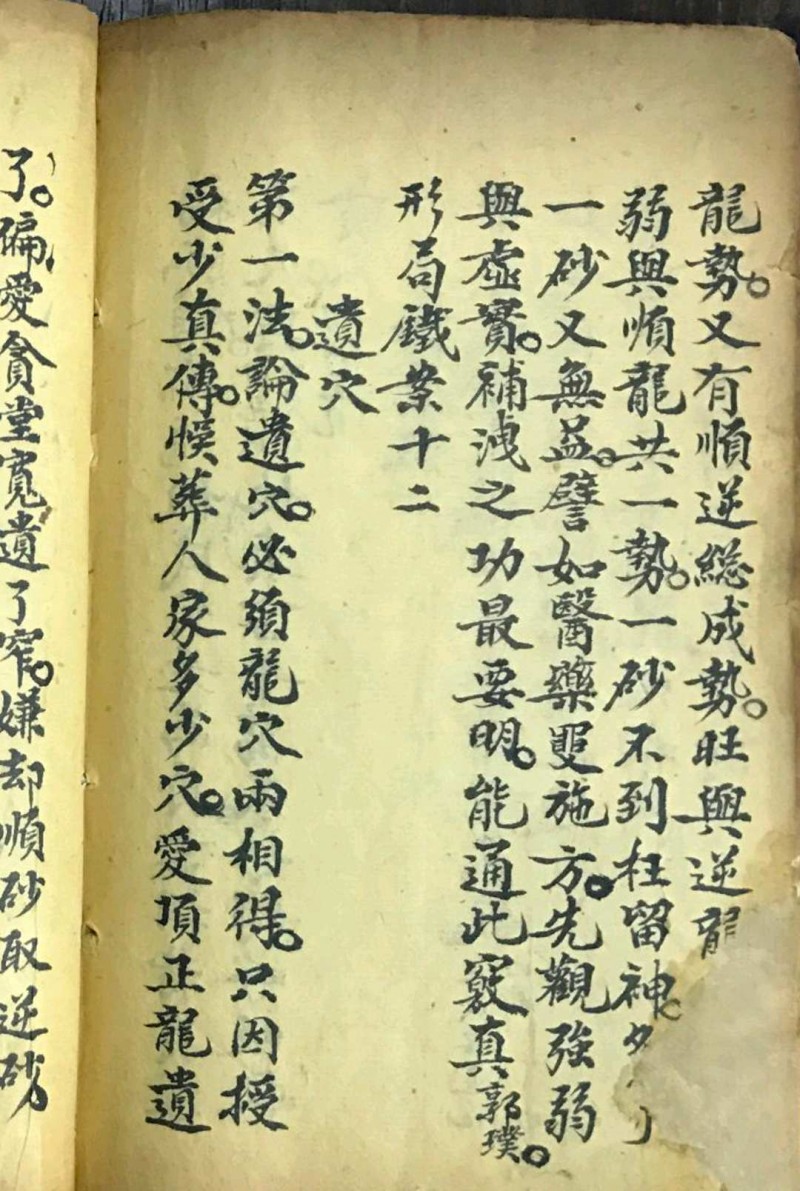 龍勢。又有順逆総成勢。旺與逆龍
弱與順龍共一勢。一砂不到枉留神。
一砂又無益。譬如醫藥要施方。先觀強弱
與虛實。補洩之功最要明。能通此竅真郭璞。
形局鐵案十二
遺穴
第一法。論遺穴。必須龍穴兩相得。只因授
受少真傳。悞葬人家多少穴。愛項正龍遺
了。偏愛貪堂寬遺了窄。嫌却順砂取逆砂